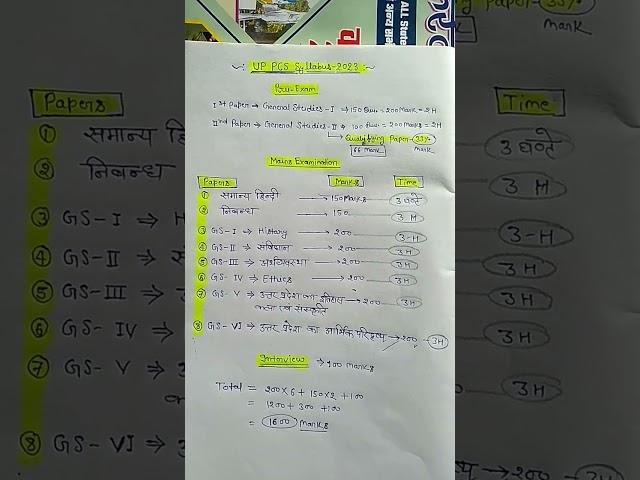 UP PCS Syllabus-2023
Pre-Exam
Ist Paper → General Studies-I → 150 Ques = 200 Mark = 2H
IInd Paper → General Studies-II → 100 Ques = 200 Marks = 2H
Qualifying Paper-(33%)
66 Mark
mark
Mains Examination
Papers Marks Time
① सामान्य हिन्दी → 150 Marks 3 घण्टे
② निबन्ध → 150 3 H
③ GS-I → History → 200 3-H
④ GS-II → संविधान → 200 3H
⑤ GS-III → अर्थव्यवस्था → 200 3H
⑥ GS-IV → Ethics → 200 3H
⑦ GS-V → उत्तर प्रदेश का इतिहास → 200 3H
कला एवं संस्कृति
⑧ GS-VI → उत्तर प्रदेश का आर्थिक परिदृश्य → 200 3H
Interview → 100 Marks
Total = 200×6 + 150×2 + 100
= 1200 + 300 + 100
= 1600 Marks
ALL State
Papers
① सामान्य हि
② निबन्ध
③ GS-I ⇒ H
④ GS-II ⇒
⑤ GS-III ⇒
⑥ GS-IV ⇒
⑦ GS-V ⇒
⑧ GS-VI ⇒
Qualifying Paper-(33%)
mark
Time
3 घण्टे
3 H
3-H
3H
3H
3H
3H
200